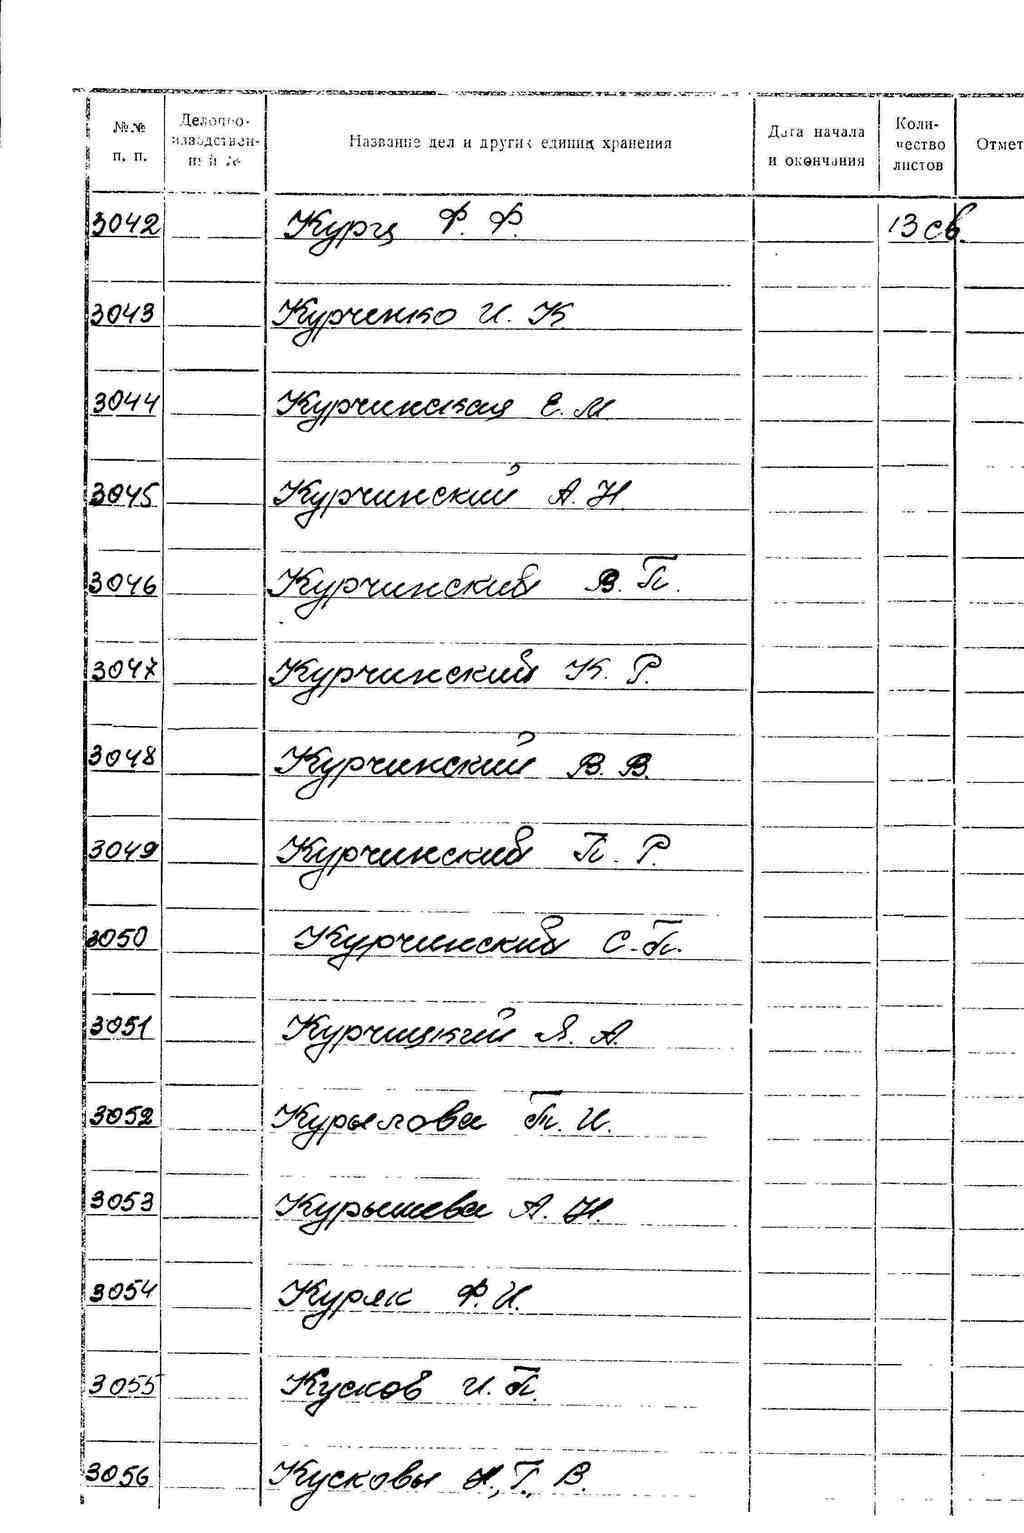 №№ п. п. Делопро-изводствен-ный № Название дел и других единиц хранения Дата начала и окончания Коли-чество листов Отмет
3042 Курц Ф. Ф. 13 св.
3043 Курченко И. К.
3044 Курчинская Е. М.
3045 Курчинский А. Н.
3046 Курчинский В. П.
3047 Курчинский К. Р.
3048 Курчинский В. В.
3049 Курчинский П. Р.
3050 Курчинский С. П.
3051 Курчицкий Я. А.
3052 Курылова П. И.
3053 Курышева А. Н.
3054 Куряк Ф. И.
3055 Кусков И. П.
3056 Кусковы Н., Г., В.